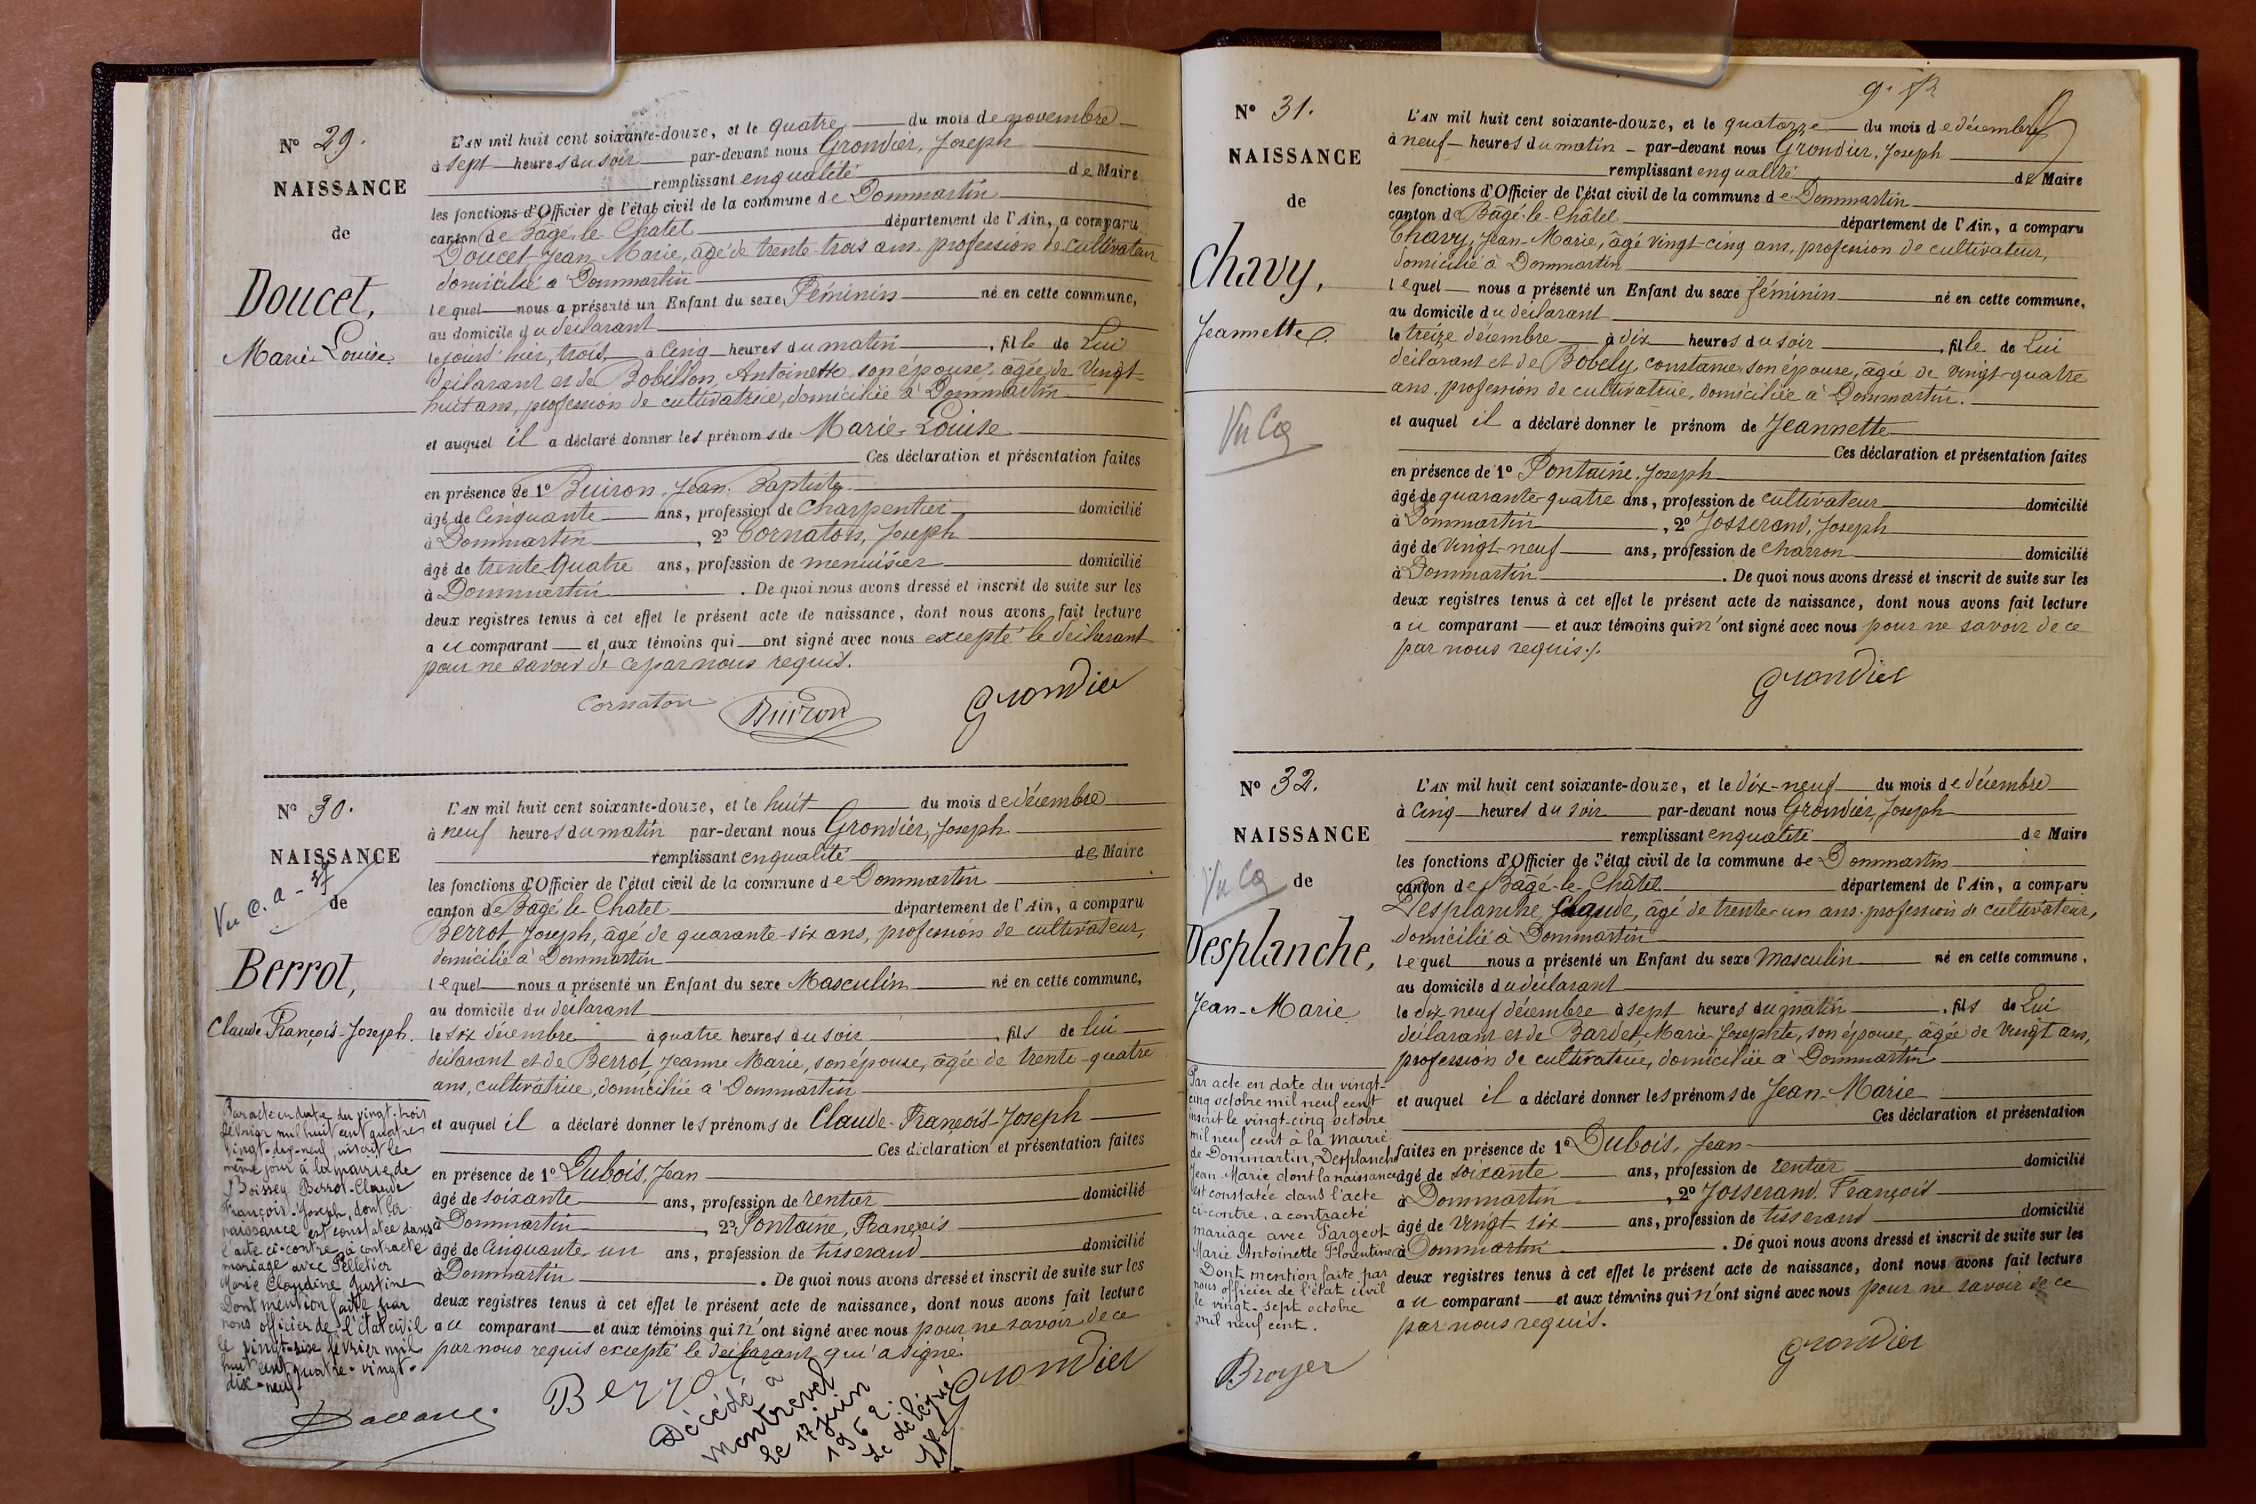 Nº 29.
NAISSANCE
de
Doucet,
Marie-Louise
L'AN mil huit cent soixante-douze, et le quatre du mois de novembre
à sept heures du soir par-devant nous Grondier, Joseph
remplissant en qualité de Maire
les fonctions d'Officier de l'état civil de la commune de Dommartin
canton de Bâgé-le-Chatel département de l'Ain, a comparu
Doucet Jean-Marie, âgé de trente-trois ans, profession de cultivateur
domicilié à Dommartin
lequel nous a présenté un Enfant du sexe Féminin né en cette commune,
au domicile du déclarant
le jourd'hier, trois, à cinq heures du matin, fille de Lui
déclarant et de Bobillon, Antoinette son épouse, âgée de vingt-
huit ans, profession de cultivatrice, domiciliée à Dommartin
et auquel il a déclaré donner les prénoms de Marie-Louise
Ces déclaration et présentation faites
en présence de 1º Buiron, Jean, Baptiste
âgé de cinquante ans, profession de charpentier domicilié
à Dommartin, 2º Cornaton, Joseph
âgé de trente-quatre ans, profession de menuisier domicilié
à Dommartin. De quoi nous avons dressé et inscrit de suite sur les
deux registres tenus à cet effet le présent acte de naissance, dont nous avons fait lecture
au comparant et aux témoins qui ont signé avec nous excepté le déclarant
pour ne savoir de ce par nous requis.
Cornaton Buiron Grondier
Nº 30.
NAISSANCE
de
Vu C. a -
Berrot,
Claude François-Joseph.
L'AN mil huit cent soixante-douze, et le huit du mois de décembre
à neuf heures du matin par-devant nous Grondier, Joseph
remplissant en qualité de Maire
les fonctions d'Officier de l'état civil de la commune de Dommartin
canton de Bâgé-le-Chatel département de l'Ain, a comparu
Berrot Joseph, âgé de quarante-six ans, profession de cultivateur,
domicilié à Dommartin
lequel nous a présenté un Enfant du sexe Masculin né en cette commune,
au domicile du déclarant
le six décembre à quatre heures du soir, fils de lui
déclarant et de Berrot, Jeanne Marie, son épouse, âgée de trente-quatre
ans, cultivatrice, domiciliée à Dommartin
et auquel il a déclaré donner les prénoms de Claude-François-Joseph
Ces déclaration et présentation faites
en présence de 1º Dubois, Jean
âgé de soixante ans, profession de rentier domicilié
à Dommartin, 2º Fontaine, François
âgé de cinquante-un ans, profession de tisserand domicilié
à Dommartin. De quoi nous avons dressé et inscrit de suite sur les
deux registres tenus à cet effet le présent acte de naissance, dont nous avons fait lecture
au comparant et aux témoins qui n'ont signé avec nous pour ne savoir de ce
par nous requis excepté le déclarant qui a signé.
Berrot Grondier
Par acte en date du vingt-trois
février mil huit cent quatre
vingt-dix-neuf, inscrit le
même jour à la mairie de
Boissey Berrot-Claude
François-Joseph, dont la
naissance est constatée dans
l'acte ci-contre a contracté
mariage avec Pelletier
Marie Claudine Justine
Dont mention faite par
nous officier de l'état civil
le vingt-six février mil
huit cent quatre-vingt-
dix-neuf
Décédé à
Montrevel
le 17 juin
1962.
Le délégué
Nº 31.
NAISSANCE
de
Chavy,
Jeannette
Vu Ca
L'AN mil huit cent soixante-douze, et le quatorze du mois de décembre
à neuf heures du matin par-devant nous Grondier, Joseph
remplissant en qualité de Maire
les fonctions d'Officier de l'état civil de la commune de Dommartin
canton de Bâgé-le-Châtel département de l'Ain, a comparu
Chavy, Jean-Marie, âgé vingt-cinq ans, profession de cultivateur,
domicilié à Dommartin
lequel nous a présenté un Enfant du sexe féminin né en cette commune,
au domicile du déclarant
le treize décembre à dix heures du soir, fille de Lui
déclarant et de Bobely, constance son épouse, âgée de vingt-quatre
ans, profession de cultivatrice, domiciliée à Dommartin.
et auquel il a déclaré donner le prénom de Jeannette
Ces déclaration et présentation faites
en présence de 1º Fontaine, Joseph
âgé de quarante-quatre ans, profession de cultivateur domicilié
à Dommartin, 2º Josserand, Joseph
âgé de vingt-neuf ans, profession de charron domicilié
à Dommartin. De quoi nous avons dressé et inscrit de suite sur les
deux registres tenus à cet effet le présent acte de naissance, dont nous avons fait lecture
au comparant et aux témoins qui n'ont signé avec nous pour ne savoir de ce
par nous requis./.
Grondier
Nº 32.
NAISSANCE
de
Vu Ca
Desplanche,
Jean-Marie
L'AN mil huit cent soixante-douze, et le dix-neuf du mois de décembre
à cinq heures du soir par-devant nous Grondier, Joseph
remplissant en qualité de Maire
les fonctions d'Officier de l'état civil de la commune de Dommartin
canton de Bâgé-le-Châtel département de l'Ain, a comparu
Desplanche, Claude, âgé de trente-un ans, profession de cultivateur,
domicilié à Dommartin
lequel nous a présenté un Enfant du sexe Masculin né en cette commune,
au domicile du déclarant
le dix neuf décembre à sept heures du matin, fils de Lui
déclarant et de Bardet, Marie-Josephte, son épouse, âgée de vingt ans,
profession de cultivatrice, domiciliée à Dommartin
et auquel il a déclaré donner les prénoms de Jean-Marie
Ces déclaration et présentation
faites en présence de 1º Dubois, Jean
âgé de soixante ans, profession de rentier domicilié
à Dommartin, 2º Josserand François
âgé de vingt six ans, profession de tisserand domicilié
à Dommartin. De quoi nous avons dressé et inscrit de suite sur les
deux registres tenus à cet effet le présent acte de naissance, dont nous avons fait lecture
au comparant et aux témoins qui n'ont signé avec nous pour ne savoir de ce
par nous requis.
Grondier
Par acte en date du vingt-
cinq octobre mil neuf cent
inscrit le vingt-cinq octobre
mil neuf cent à la Mairie
de Dommartin, Desplanche
Jean Marie dont la naissance
est constatée dans l'acte
ci-contre, a contracté
mariage avec Pargeot
Marie Antoinette Florentine
Dont mention faite par
nous officier de l'état civil
le vingt-sept octobre
mil neuf cent.
Broyer